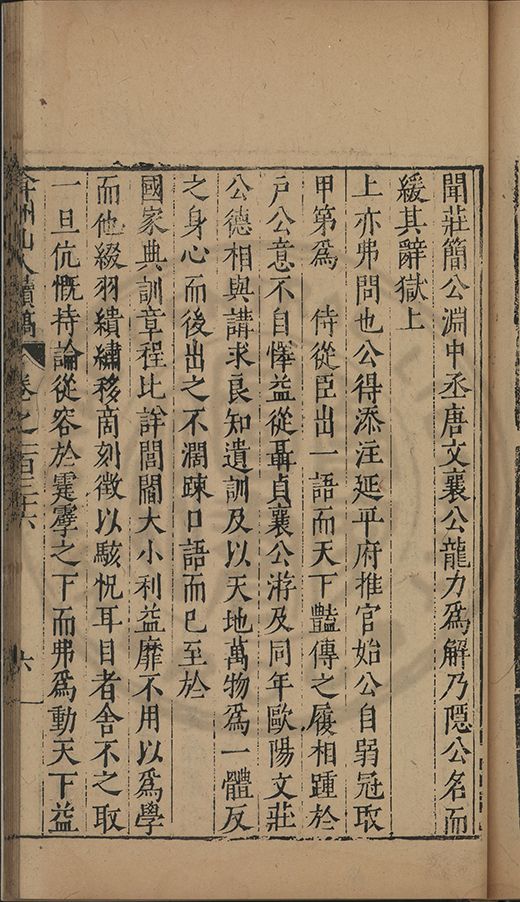 聞莊簡公淵中丞唐文襄公龍力爲解乃隱公名而
緩其辭獄上
上亦弗問也公得添注延平府推官始公自弱冠取
甲第爲　侍從臣出一語而天下豔傳之履相踵於
戶公意不自懌益從聶貞襄公游及同年歐陽文莊
公德相與講求良知遺訓及以天地萬物爲一體反
之身心而後出之不濶疎口語而已至於
國家典訓章程比詳閭閻大小利益靡不用以爲學
而他綴羽繢繡移商刻徵以駭怳耳目者舍不之取
一旦伉慨持論從容於霆霽之下而弗爲動天下益
弇州山人續稿
卷之一百三十六
六